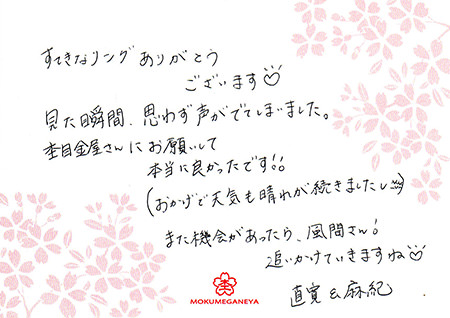 すてきなリングありがとう
ございます♡
見た瞬間、思わず声がでてしまいました。
杢目金屋さんにお願いして
本当に良かったです!!
(おかげで天気も晴れが続きましたし)
また機会があったら、風間さん!
追いかけていきますね♡
MOKUMEGANEYA
直寛&麻紀